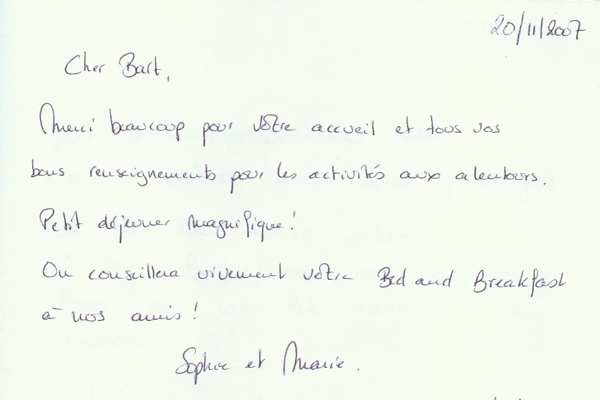 20/11/2007
Cher Bart,
Merci beaucoup pour votre accueil et tous vos
bons renseignements pour les activités aux alentours.
Petit déjeuner magnifique !
On conseillera vivement votre Bed and Breakfast
à nos amis !
Sophie et Marie.